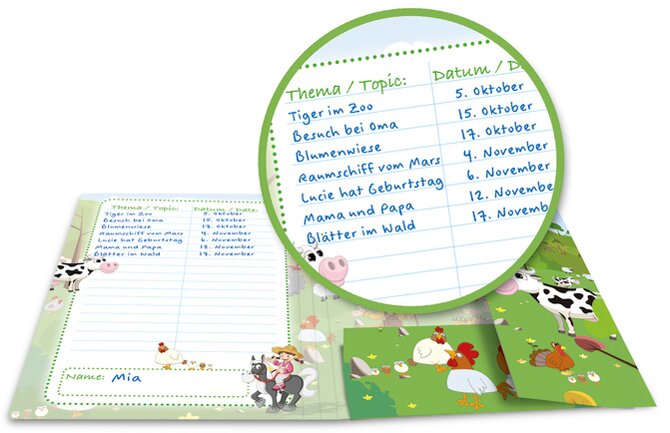 Thema / Topic: Datum / D
Tiger im Zoo 5. Oktober
Besuch bei Oma 15. Oktober
Blumenwiese 17. Oktober
Raumschiff vom Mars 4. November
Lucie hat Geburtstag 6. November
Mama und Papa 12. November
Blätter im Wald 17. Novemb
Thema / Topic: Datum / Date:
Tiger im Zoo 5. Oktober
Besuch bei Oma 15. Oktober
Blumenwiese 17. Oktober
Raumschiff vom Mars 4. November
Lucie hat Geburtstag 6. November
Mama und Papa 12. November
Blätter im Wald 17. November
Name: Mia